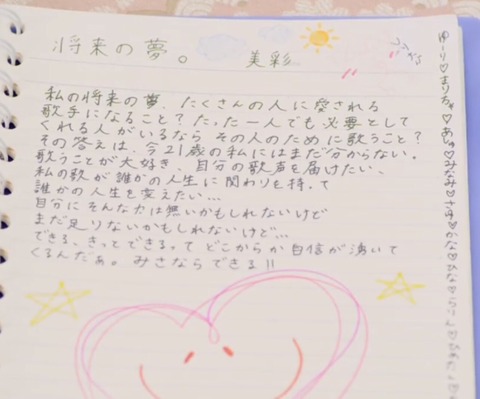 将来の夢。 美彩
私の将来の夢、たくさんの人に愛される
歌手になること？たった一人でも必要として
くれる人がいるなら その人のために歌うこと？
その答えは、今21歳の私にはまだ分からない。
歌うことが大好き、自分の歌声を届けたい、
私の歌が誰かの人生に関わりを持って
誰かの人生を変えたい…
自分にそんな力は無いかもしれないけど
まだ足りないかもしれないけど…
できる、きっとできるって どこからか自信が湧いて
くるんだぁ。 みさならできる!!
ゆーり♡まりちゅ♡あしゅ♡みなみ♡さゆ♡かな♡ひな♡らりん♡ひめたん♡